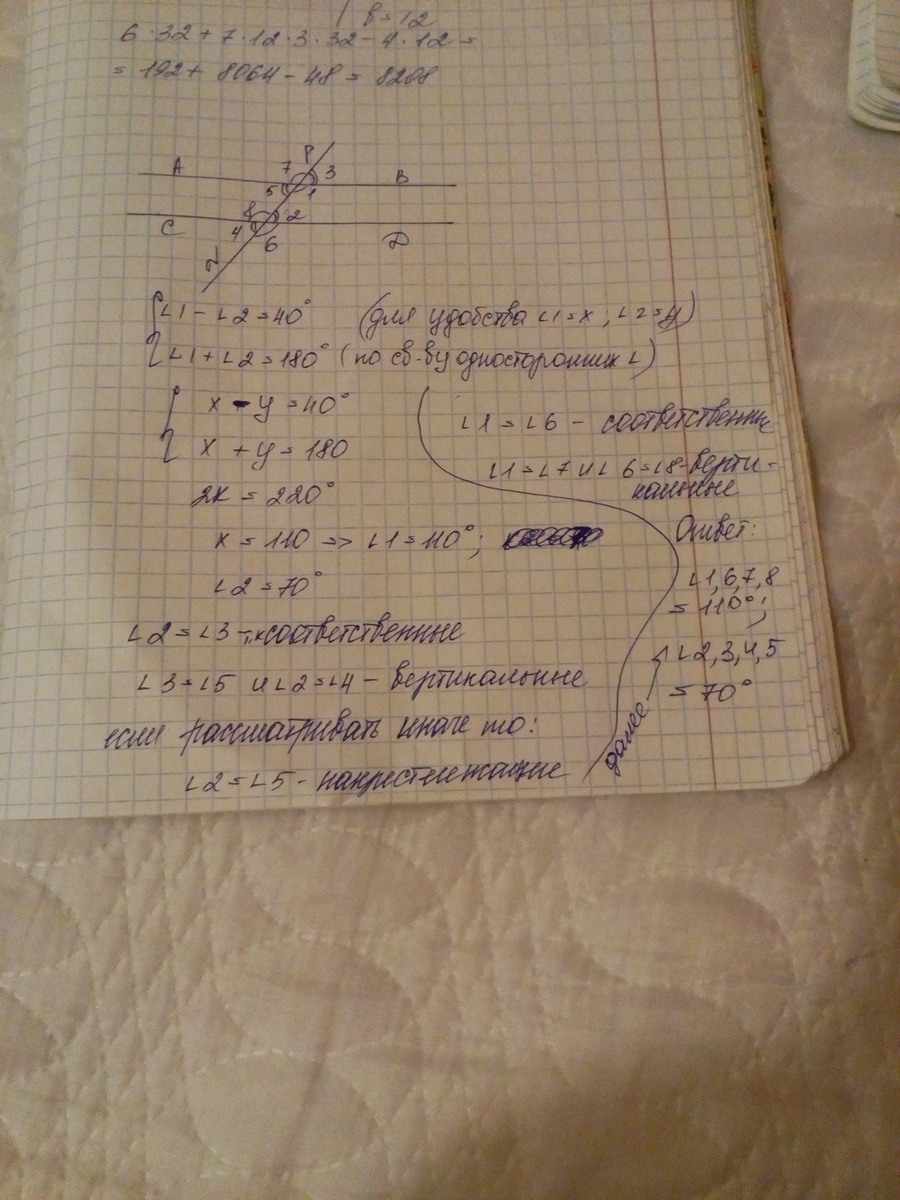 в = 12
6 · 32 + 7 · 12 · 3 · 32 - 4 · 12 =
= 192 + 8064 - 48 = 8208
P
A 7 3 B
5 1
8 2
C 4 6 D
N
∠1 - ∠2 = 40° (для удобства ∠1 = x; ∠2 = y)
∠1 + ∠2 = 180° (по св-ву односторонних ∠)
x - y = 40°
x + y = 180
2x = 220°
x = 110 => ∠1 = 110°;
∠2 = 70°
∠2 = ∠3 - т.к соответственные
∠3 = ∠5 и ∠2 = ∠4 - вертикальные
если рассматривать иначе то:
∠2 = ∠5 - накрестлежащие
далее
∠1 = ∠6 - соответственные
∠1 = ∠7 и ∠6 = ∠8 - верти-
кальные
Ответ:
∠1,6,7,8
= 110°;
∠2,3,4,5
= 70°